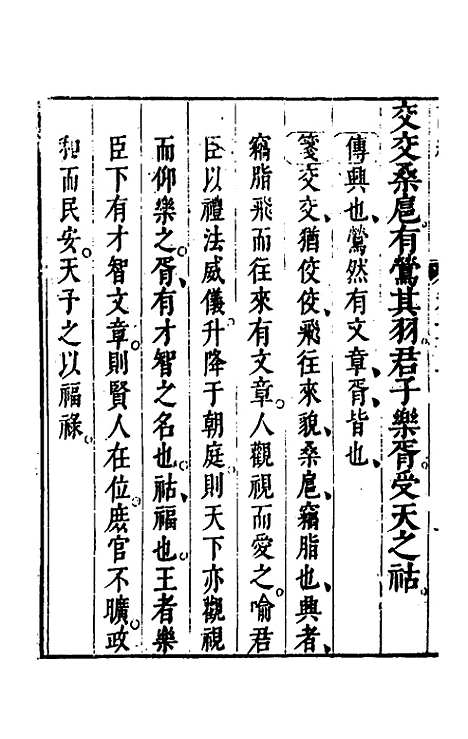 交交桑扈。有鶯其羽。君子樂胥。受天之祜。
傳興也、鶯然有文章、胥、皆也、
箋交交、猶佼佼、飛往來貌、桑扈、竊脂也、興者、
竊脂飛而往來有文章。人觀視而愛之。喻君
臣以禮法威儀。升降于朝庭。則天下亦觀視
而仰樂之。胥、有才智之名也、祜、福也、王者樂
臣下有才智文章。則賢人在位。庶官不曠。政
和而民安。天子之以福祿。